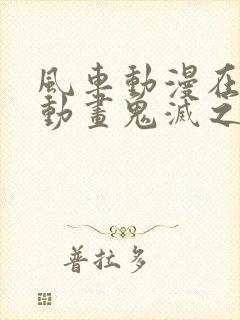 風車動漫在
動畫鬼滅之
普拉多